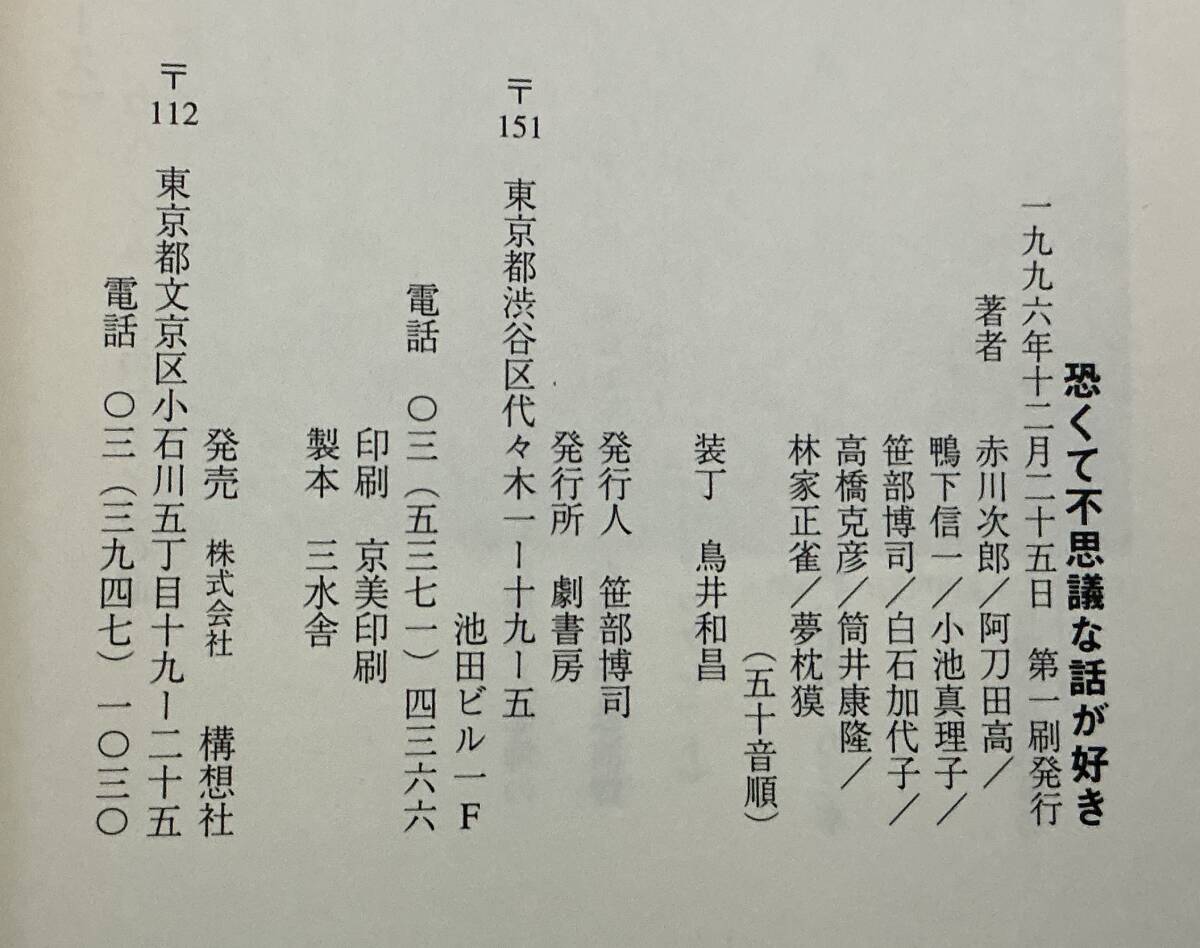 恐くて不思議な話が好き
一九九六年十二月二十五日　第一刷発行
著者　赤川次郎／阿刀田高／
鴨下信一／小池真理子／
笹部博司／白石加代子／
高橋克彦／筒井康隆／
林家正雀／夢枕獏
（五十音順）
装丁　鳥井和昌
発行人　笹部博司
発行所　劇書房
〒151　東京都渋谷区代々木一ー十九ー五
池田ビル一F
電話　〇三（五三七一）四三六六
印刷　京美印刷
製本　三水舎
発売　株式会社　構想社
〒112　東京都文京区小石川五丁目十九ー二十五
電話　〇三（三九四七）一〇三〇